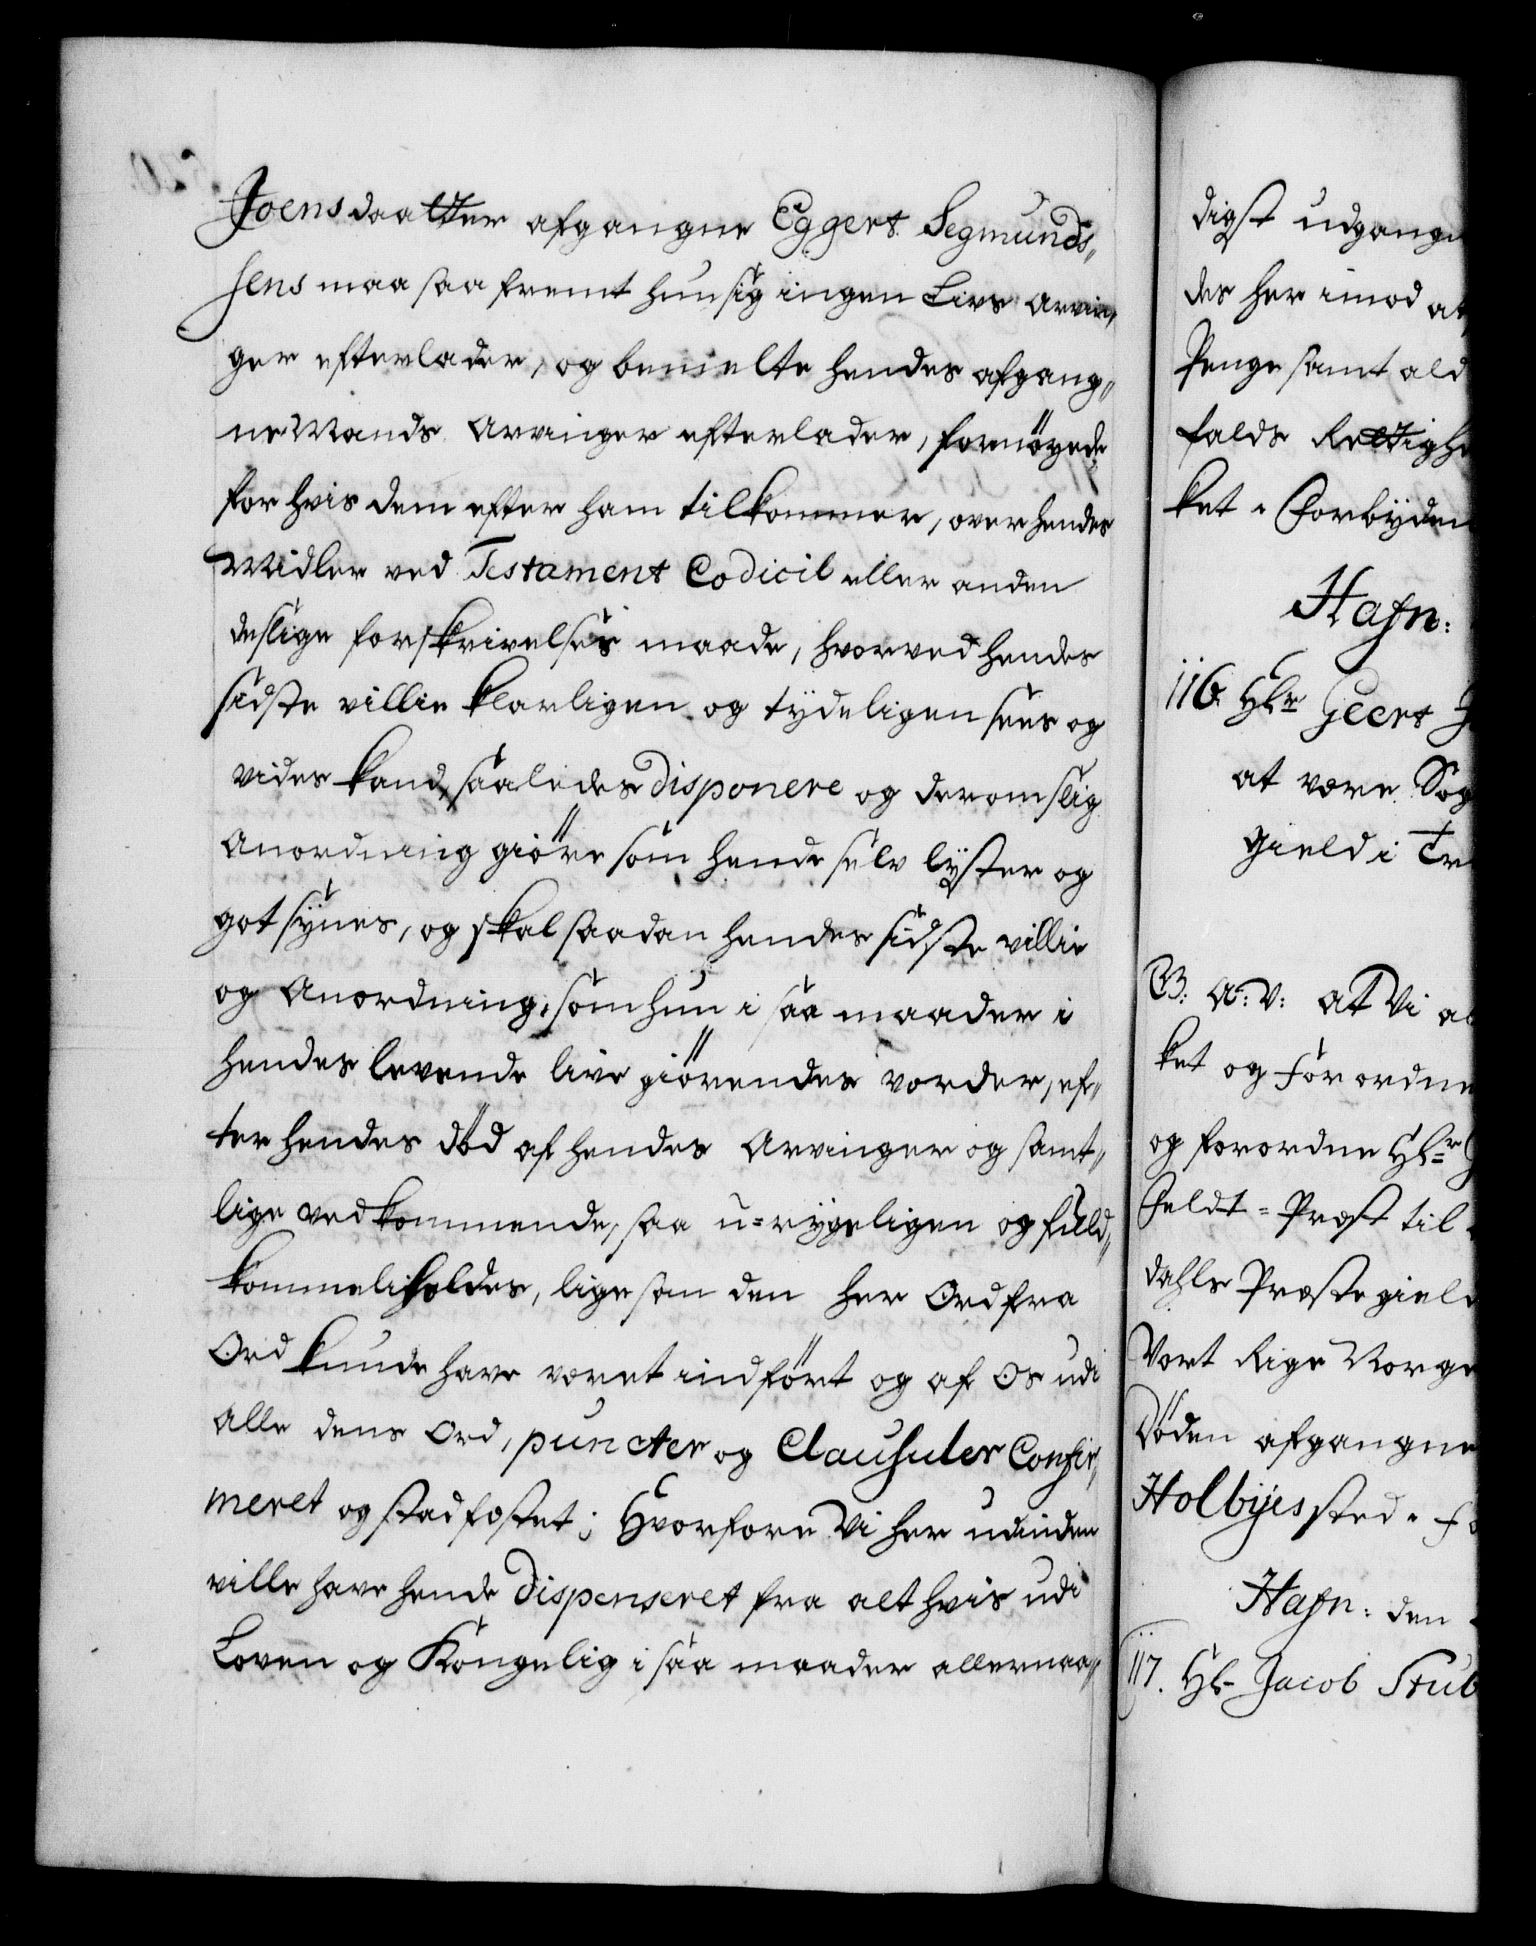 Joensdaatter afgangne Eggert Segmunds„
sens maa saa fremt hun sig ingen Livs Arvin„
ger efterlader, og bemelte hendes afgang„
ne Mands Arvinger efterlader, fornøyede
for hvis dem efter ham tilkommer, over hendes
Midler ved Testament Codicil eller anden
deslige forskrivelses maade, hvorved hendes
sidste villie klarligen og tydeligen sees og
vides kand, saaledes disponere og derom slig
Anordning giöre som hende selv lyster og
got synes, og skal saadan hendes sidste villie
og Anordning, som hun i saa maader i
hendes levende live giörendes vorder, ef„
ter hendes död af hendes Arvinger og samt„
lige vedkommende, saa u=rygeligen og fuld„
kommelig holdes, lige som den her Ord fra
Ord kunde have været indført og af Os udi
alle dens Ord, puncter og Clausuler Confir„
meret og stadfæstet; Hvorfore Vi her udinden
ville have hende dispenseret fra alt hvis udi
Loven og Kongelig i saa maader allernaa„
digst udgange
des her imod at
Penge samt ald
falds Rettighe
ket. Forbyden
Hafn:
116. Hr Geert
at være Sog
gield i Tr
G: A: V: At Vi al
ket og Forordne
og forordne Hr
feldt = Præst til
dahls Præstegield
Vort Rige Norge
Döden afgangne
Holbyes sted. F
Hafn: den
117. Hr Jacob Stub